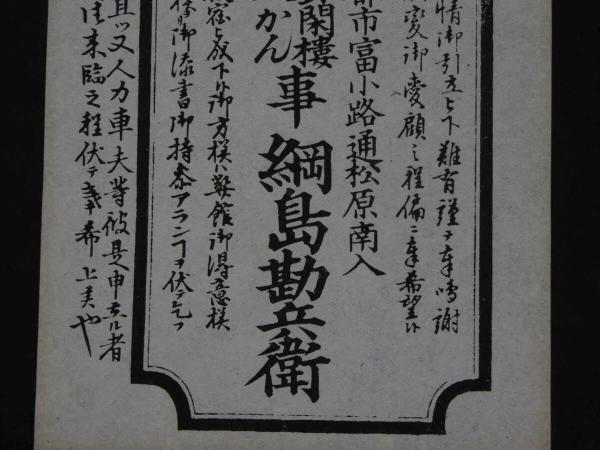 情御引立被下難有謹テ奉鳴謝
変御愛顧之程偏ニ奉希望候
都市富小路通松原南入
閑楼
かん
事 綱島勘兵衛
宿被成下候御方様ハ弊館御得意様
御添書御持参アランヿヲ伏テ乞フ
且ツ又人力車夫等彼是申立ル者
往来臨之程伏テ奉希上候也